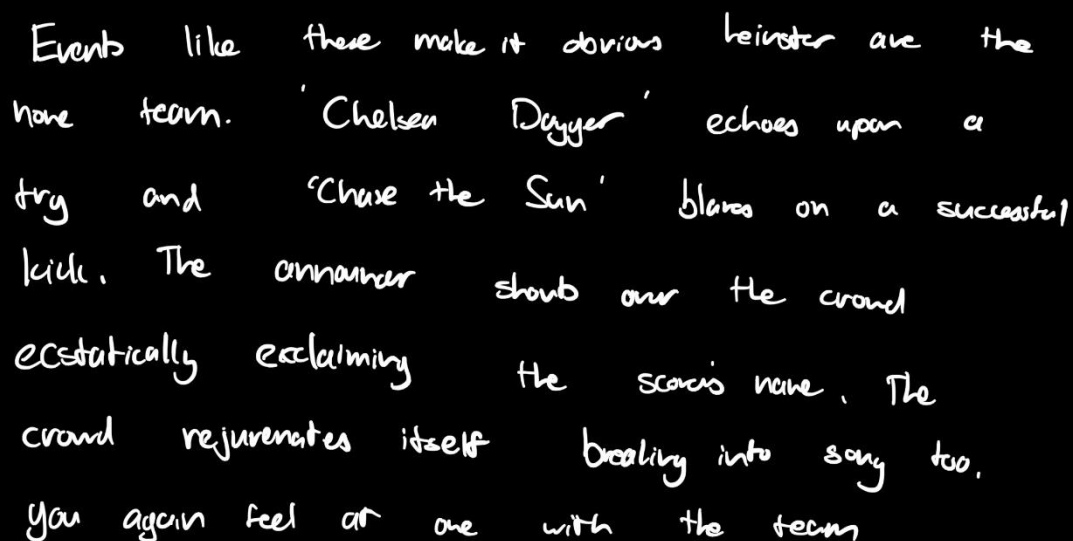 Events like these make it obvious Leinster are the
home team. 'Chelsea Dagger' echoes upon a
try and 'Chase the Sun' blares on a successful
kick. The announcer shouts over the crowd
ecstatically exclaiming the scorer's name. The
crowd rejuvenates itself breaking into song too.
You again feel at one with the team